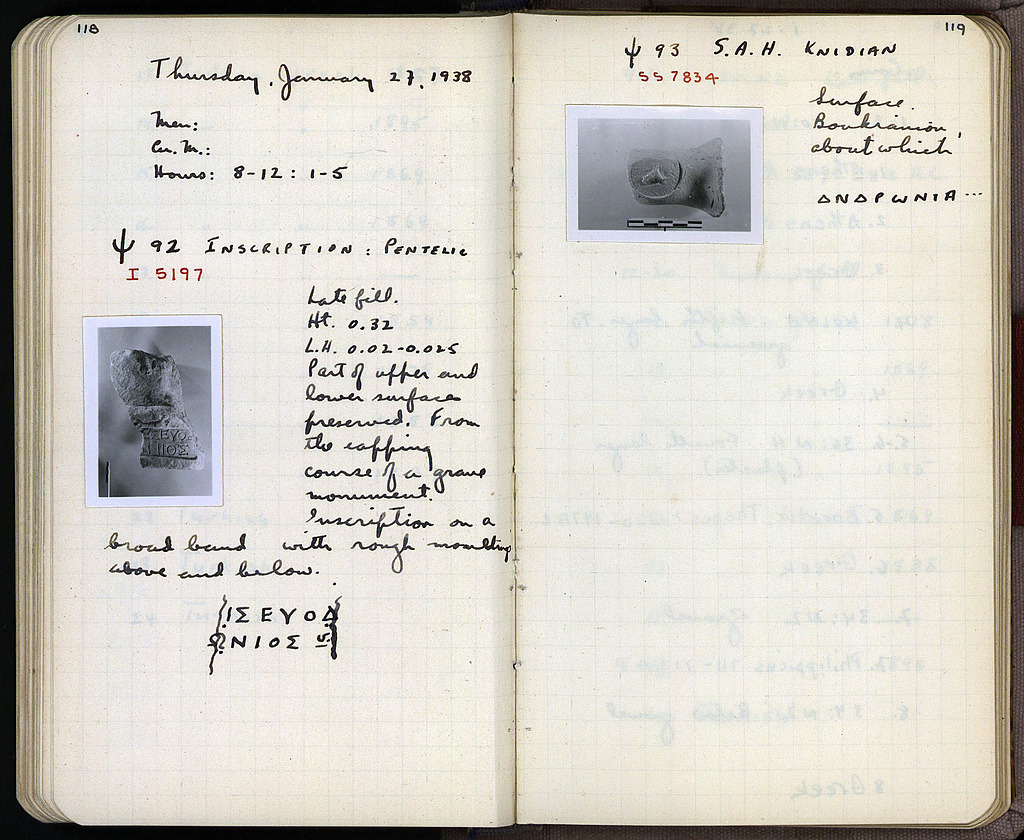 118
Thursday, January 27, 1938
Men:
Cu. M.:
Hours: 8-12 : 1-5
ψ 92 INSCRIPTION : PENTELIC
I 5197
Late fill.
Ht. 0.32
L.H. 0.02-0.025
Part of upper and
lower surface
preserved. From
the capping
course of a grave
monument.
Inscription on a
broad band with rough moulding
above and below.
ΙΣ ΕΥΟΔ
ΝΙΟΣ
119
ψ 93 S.A.H. KNIDIAN
SS 7834
Surface.
Boukranion,
about which
ΑΝΔΡΩΝΙΔ...